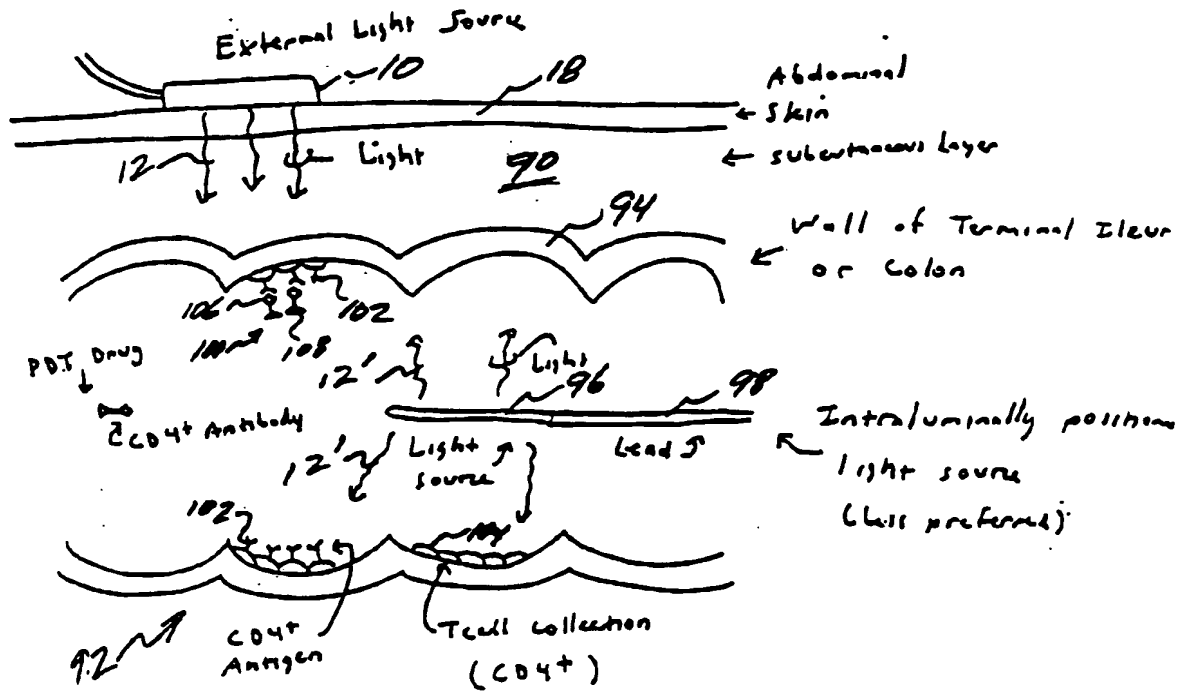 External Light Source
10
18
Abdominal
Skin
subcutaneous Layer
12
Light
90
94
Wall of Terminal Ileum
or Colon
106
102
100
108
PDT Drug
12'
Light
96
98
CD4+ Antibody
12'
Light
source
Lead
Intraluminally position
light source
(Less preferred)
102
104
CD4+
Antigen
Tcell collection
(CD4+)
92